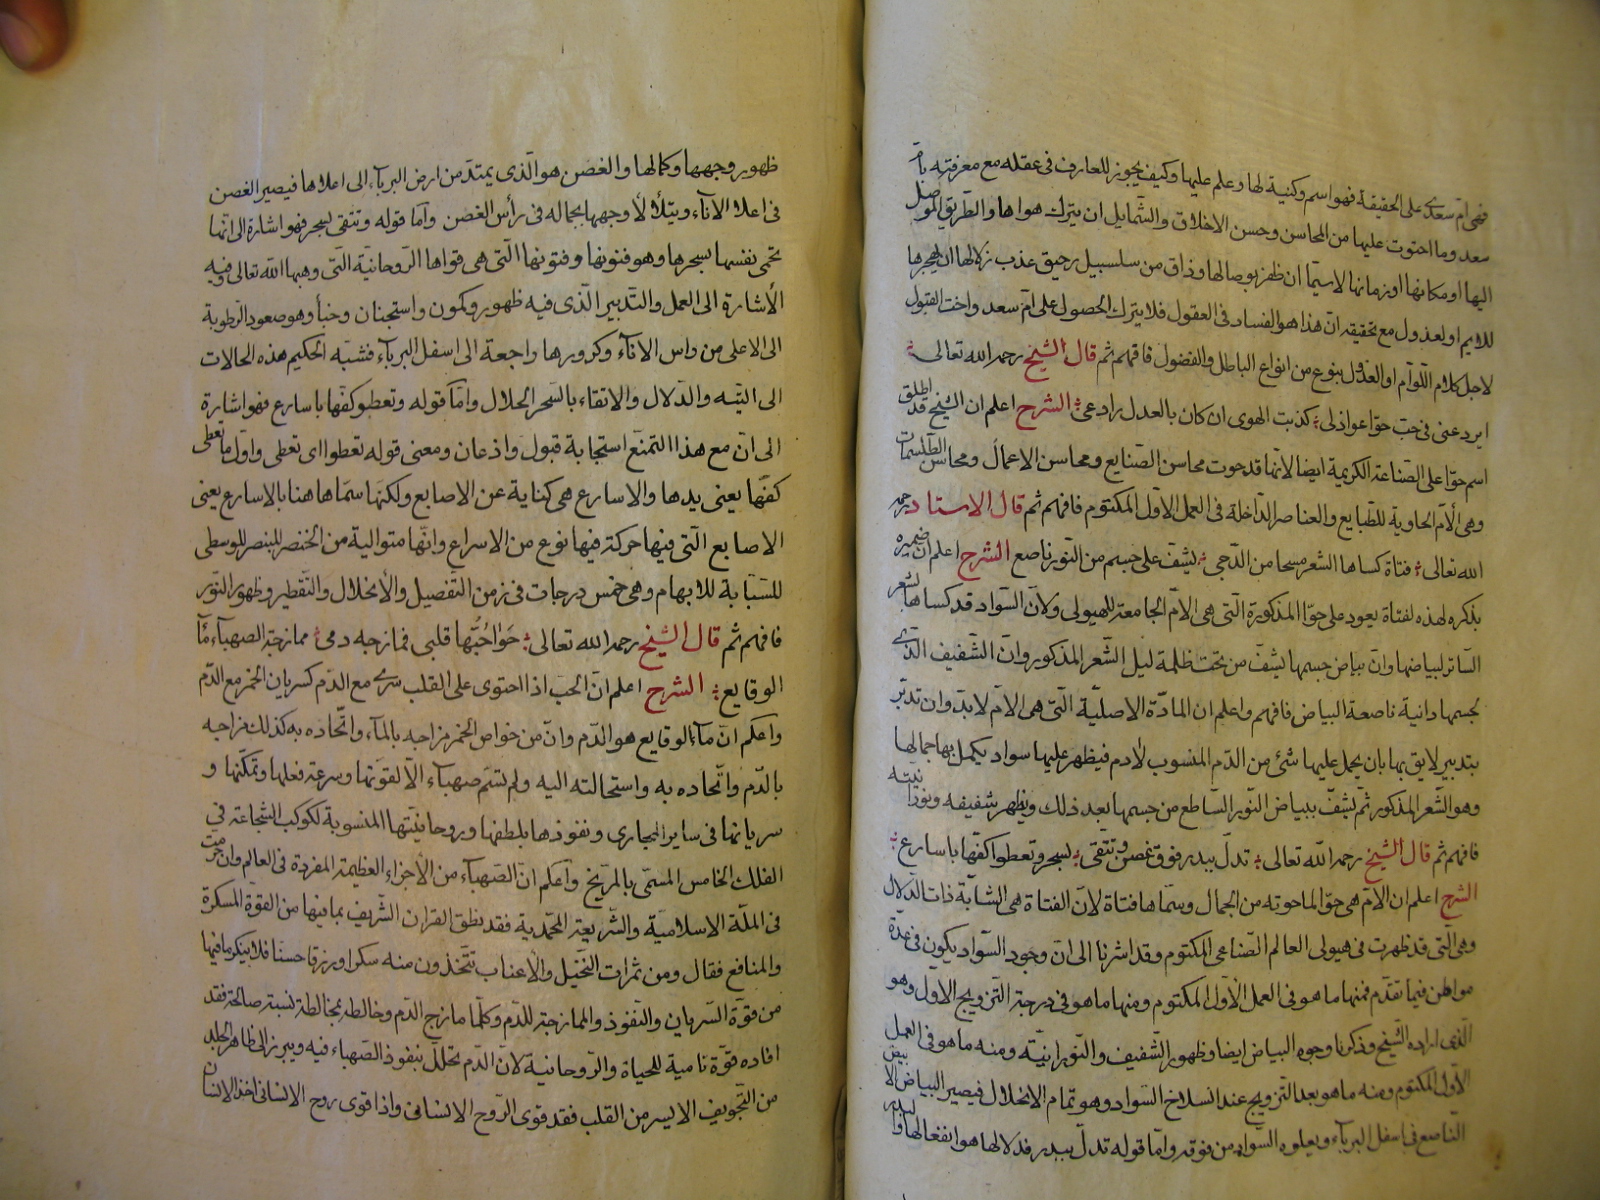 فهى ام سعدى على الحقيقة فهو اسم وكنية لها وعلم عليها وكيف يجوز للعارف فى عقله مع معرفته بام
سعد وما احتوت عليها من المحاسن وحسن الاخلاق والشمايل ان يترك هواها والطريق الموصل
اليها او مكانها او زمانها لاسيما ان ظفر بوصالها وذاق من سلسبيل رحيق عذب زلالها ان يهجرها
للايم او لعذول مع تحقيقه ان هذا هو الفساد فى العقول فلا يترك الحصول على ام سعد واخت القبول
لاجل كلام اللوام او العذول بنوع من انواع الباطل والفضول فافهم ثم قال الشيخ رحمه الله تعالى
ايردعنى فى حب حوا عواذلى كذبت الهوى ان كان بالعدل رادعى الشرح اعلم ان الشيخ قد اطلق
اسم حوا على الصناعة الكريمة ايضا لانها قد حوت محاسن الصنايع ومحاسن الاعمال ومحاسن الطلسمات
وهى الام الحاوية للطبايع والعناصر الداخلة فى العمل الاول المكتوم فافهم ثم قال الاستاد رحمه
الله تعالى فتاة كساها الشعر مسحا من الدجى يشف على جسم من النور ناصع الشرح اعلم ان ضميره
بذكره لهذه لفتاة يعود على حوا المذكورة التى هى الام الجامعة للهيولى ولان السواد قد كساها لشعر
الساتر لبياضها وان بياض جسمها يشف من تحت ظلمة ليل الشعر المذكور وان الشفيف الذى
لجسمها دانية ناصعة البياض فافهم واعلم ان المادة الاصلية التى هى الام لابد وان تدبر
بتدبير لايق بها بان يحمل عليها شئ من الدم المنسوب لادم فيظهر عليها سواد يكمل بها جمالها
وهو الشعر المذكور ثم يشف ببياض النور الساطع من جسمها بعد ذلك ويظهر شفيفه ونورانيته
فافهم ثم قال الشيخ رحمه الله تعالى تدل ببدر فوق غصن وتتقى بسحر وتعطوا كفها باسارع
الشرح اعلم ان الام هى حوا لما حوته من الجمال وسماها فتاة لان الفتاة هى الشابة ذات الدلال
وهى التى قد ظهرت فى هيولى العالم الصناعى المكتوم وقد اشرنا الى ان وجود السواد يكون فى عدة
مواطن فيما تقدم فمنها ما هو فى العمل الاول المكتوم ومنها ما هو فى درجة التزويج الاول وهو
الذى اراده الشيخ وذكرنا وجوه البياض ايضا وظهور الشفيف والنورانية ومنه ما هو فى العمل
الاول المكتوم ومنه ما هو بعد التزويج عند انسلاخ السواد وهو تمام الانحلال فيصير البياض الابيض
الناصع فى اسفل البرباء ويعلوه السواد من فوقه واما قوله تدل ببدر فدلالها هو انفعالها والبدر
ظهور وجهها وكمالها والغصن هو الذى يمتد من ارض البرباء الى اعلاها فيصير الغصن
فى اعلا الاناء ويتلألأ وجهها بجماله فى رأس الغصن واما قوله وتتقى بسحر فهو اشارة الى انها
تحمى نفسها بسحرها وهو فنونها وفتونها التى هى قواها الروحانية التى وهبها الله تعالى وفيه
الأشارة الى العمل والتدبير الذى فيه ظهور وكمون واستجنان وخبأ وهو صعود الرطوبة
الى الاعلى من راس الاناء وكرورها راجعة الى اسفل البرباء فشبه الحكيم هذه الحالات
الى التيه والدلال والاتقاء بالسحر الحلال واما قوله وتعطو كفها باسارع فهو اشارة
الى ان مع هذا التمنع استجابة قبول واذعان ومعنى قوله تعطوا اى تعطى واول ما تعطى
كفها يعنى يدها والاسارع هى كناية عن الاصابع ولكنها سماها هنا بالاسارع يعنى
الاصابع التى فيها حركة فيها نوع من الاسراع وانها متوالية من الخنصر للبنصر للوسطى
للسبابة للابهام وهى خمس درجات فى زمن التفصيل والأنحلال والتقطير وظهور النور
فافهم ثم قال الشيخ رحمه الله تعالى حوا حبها قلبى فمازجه دمى ممازجة الصهباء ماء
الوقايع الشرح اعلم ان الحب اذا احتوى على القلب سرى مع الدم كسريان الخمر مع الدم
واعلم ان ماء الوقايع هو الدم وان من خواص الخمر مزاجه بالماء واتحاده به كذلك مزاجه
بالدم واتحاده به واستحالته اليه ولم تسم صهباء الا لقوتها وسرعة فعلها وتمكنها و
سريانها فى ساير المجارى ونفوذها بلطفها وروحانيتها المنسوبة لكوكب الشجاعة فى
الفلك الخامس المسمى بالمريخ واعلم ان الصهباء من الأجزاء العظيمة المفردة فى العالم وان حرمت
فى الملة الاسلامية والشريعة المحمدية فقد نطق القران الشريف بما فيها من القوة المسكرة
والمنافع فقال ومن ثمرات النخيل والأعناب تتخذون منه سكرا ورزقا حسنا فلا ينكر ما فيها
من قوة السريان والنفوذ والممازجة للدم وكلما مازج الدم وخالطه بمخالطة نسبة صالحة فقد
افاده قوة نامية للحياة والروحانية لان الدم تحلل بنفوذ الصهباء فيه ويبرز الى ظاهر الجلد
من التجويف الايسر من القلب فقد قوى الروح الانسانى واذا قوى روح الانسانى اخذ الانسان